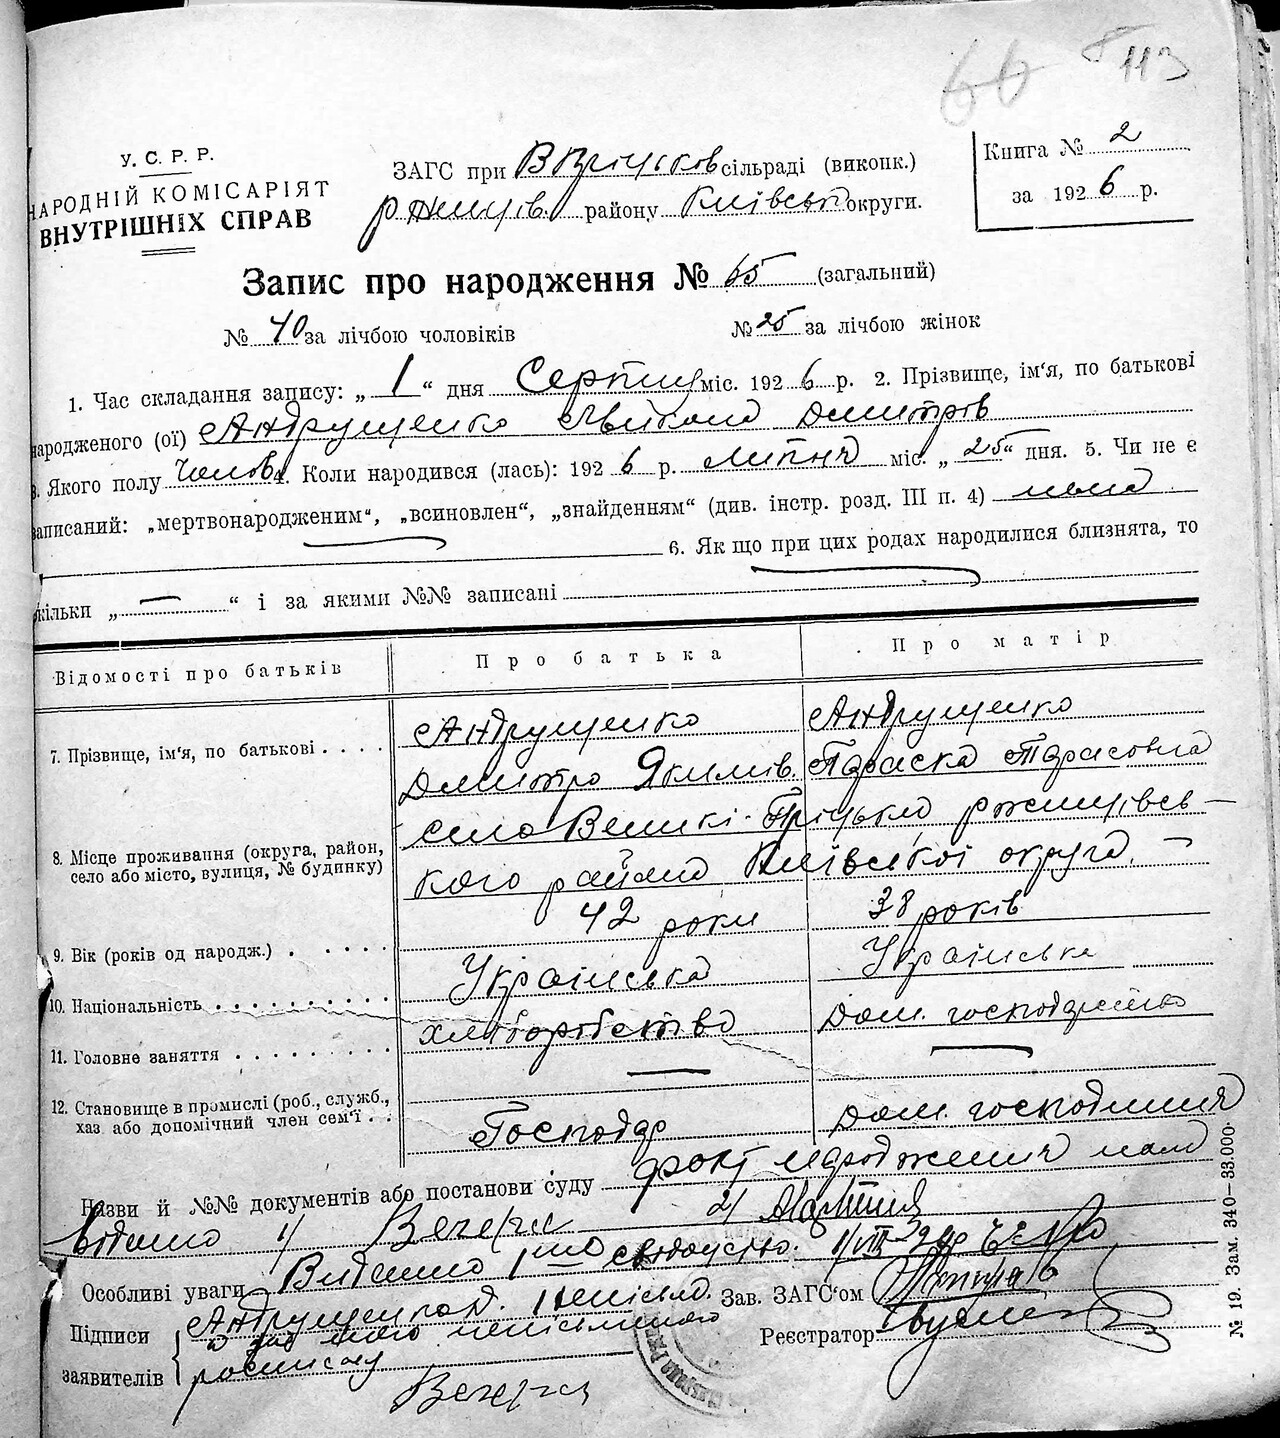 66 113
У. С. Р. Р.
НАРОДНІЙ КОМІСАРІЯТ
ВНУТРІШНІХ СПРАВ
ЗАГС при В Пріцьков сільраді (виконк.)
ржищів. району Київської округи.
Книга № 2
за 1926 р.
Запис про народження № 65 (загальний)
№ 40 за лічбою чоловіків № 25 за лічбою жінок
1. Час складання запису: „ 1 “ дня Серпня міс. 1926 р. 2. Прізвище, ім‘я, по батькові
народженого (ої) Андрущенко Микола Дмитров
3. Якого полу Чолов. 4. Коли народився (лась): 1926 р. липня міс. „ 25 “ дня. 5. Чи не є
записаний: „мертвонародженим“, „всиновлен“, „знайденням“ (див. інстр. розд. III п. 4) нема
6. Як що при цих родах народилися близнята, то
скільки „ — “ і за якими №№ записані
Відомості про батьків Про батька Про матір
7. Прізвище, ім‘я, по батькові . . . . Андрущенко Андрущенко
Дмитро Якимів. Параска Тарасовна
8. Місце проживання (округа, район, село або місто, вулиця, № будинку) село Великі-Пріцьки ржищівсь-
кого району Київської округи. —
9. Вік (років од народж.) . . . . . 42 роки 38 років
10. Національність . . . . . . . . . . Українська Українська
11. Головне заняття . . . . . . . . . хліборобство Дом. господарство
12. Становище в промислі (роб., служб., хаз або допомічний член сем‘ї . . . Господар Дом. господиня
Назви й №№ документів або постанови суду факт народження
видано 1/ 2/
Особливі уваги Видано 1
Підписи заявителів Андрущенко Д. неписьм.
а за него неписьменного
росписсу
Зав. ЗАГС‘ом
Реєстратор
№ 19. Зам. 340—33.000.